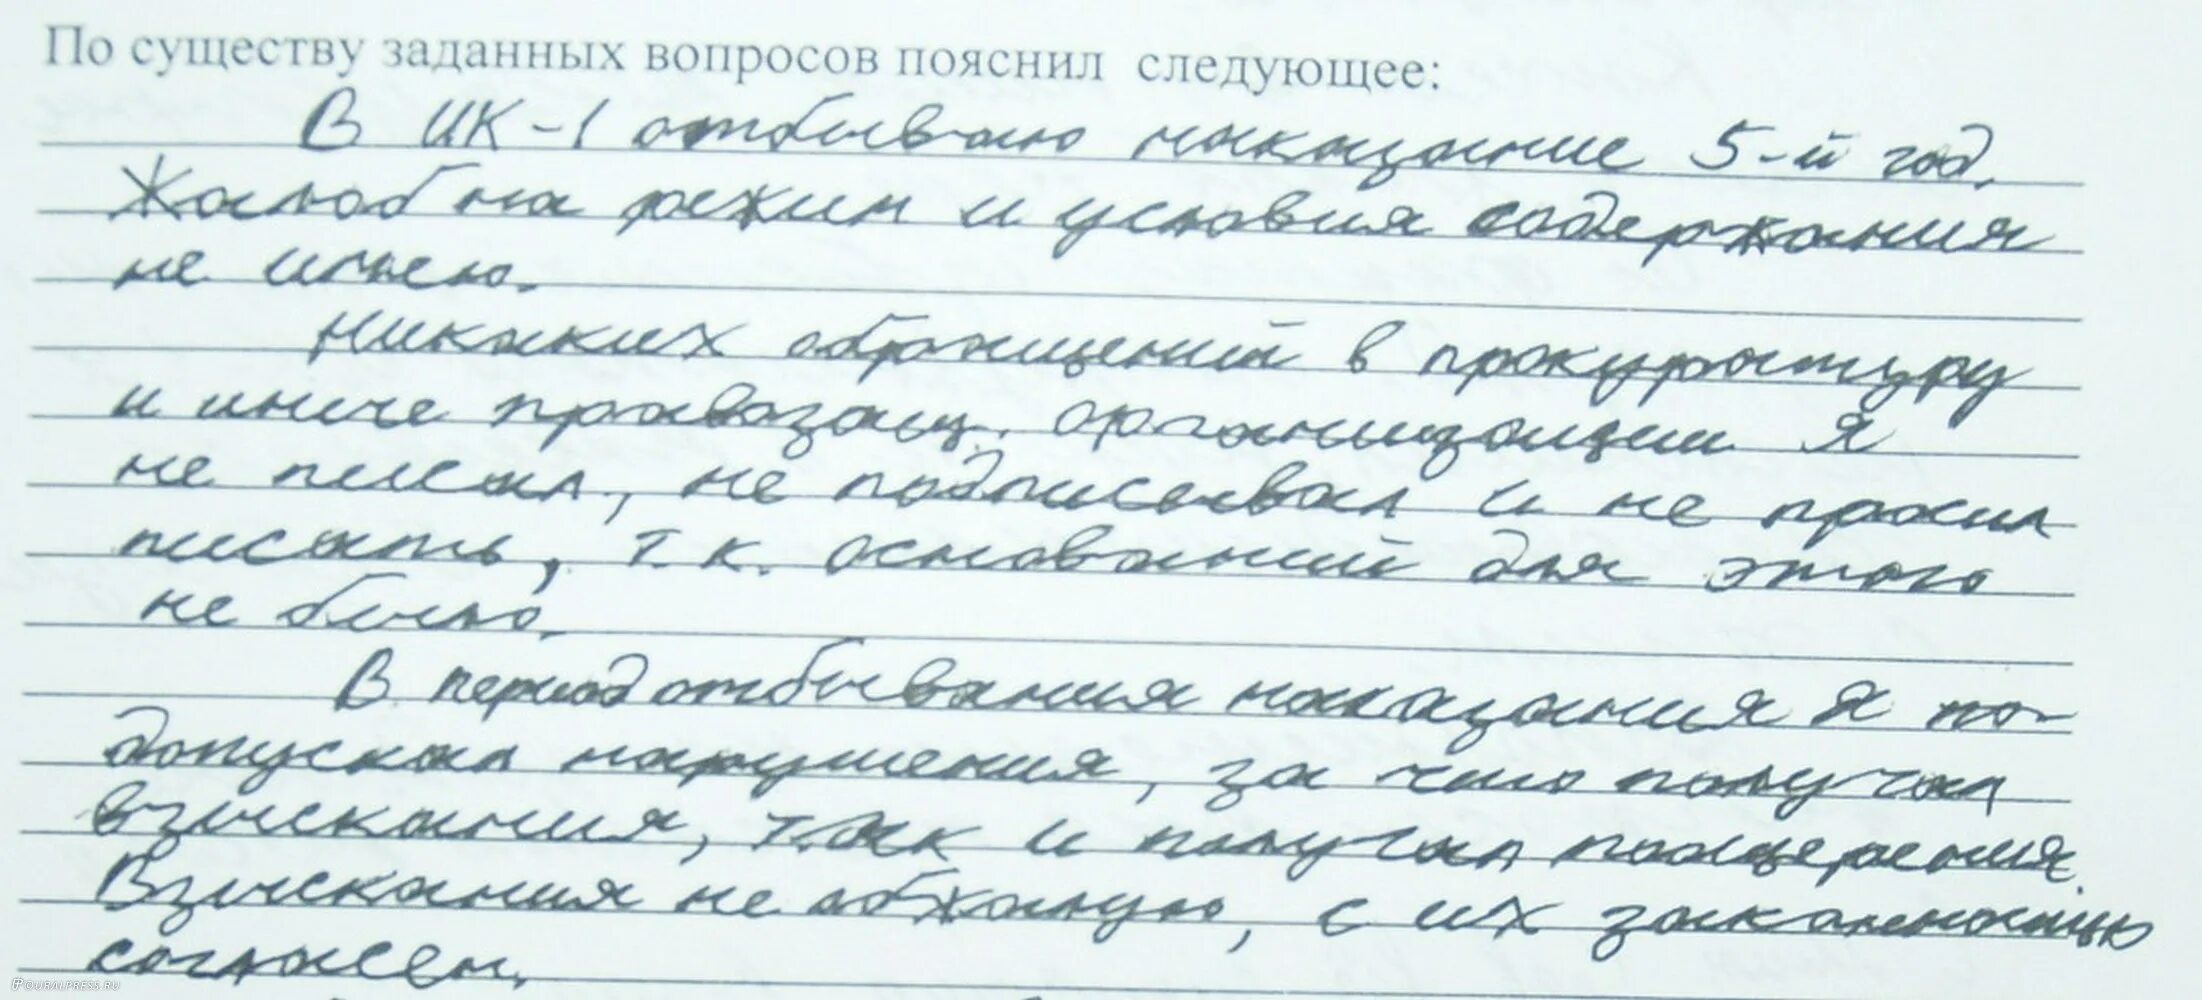 По существу заданных вопросов пояснил следующее:
В ИК-1 отбываю наказание 5-й год.
Жалоб на режим и условия содержания
не имею.
Никаких обращений в прокуратуру
и иные правозащ. организации я
не писал, не подписывал и не просил
писать, т.к. оснований для этого
не было.
В период отбывания наказания я
допускал нарушения, за что получал
взыскания, так и получал поощрения.
Взыскания не обжалую, с их законностью
согласен.
OURALPRESS.RU